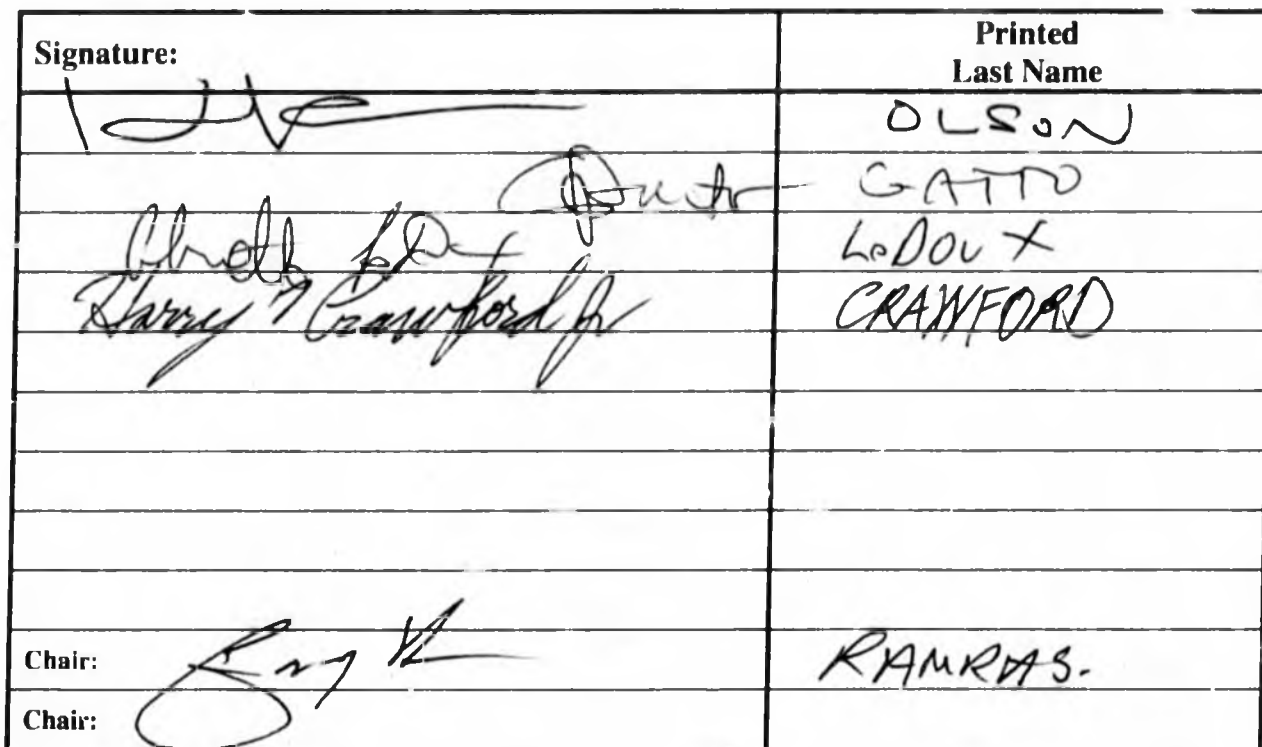 Signature: Printed
Last Name
OLSON
GATTO
LeDoux
Harry T Crawford Jr CRAWFORD
Chair: RAMRAS.
Chair: